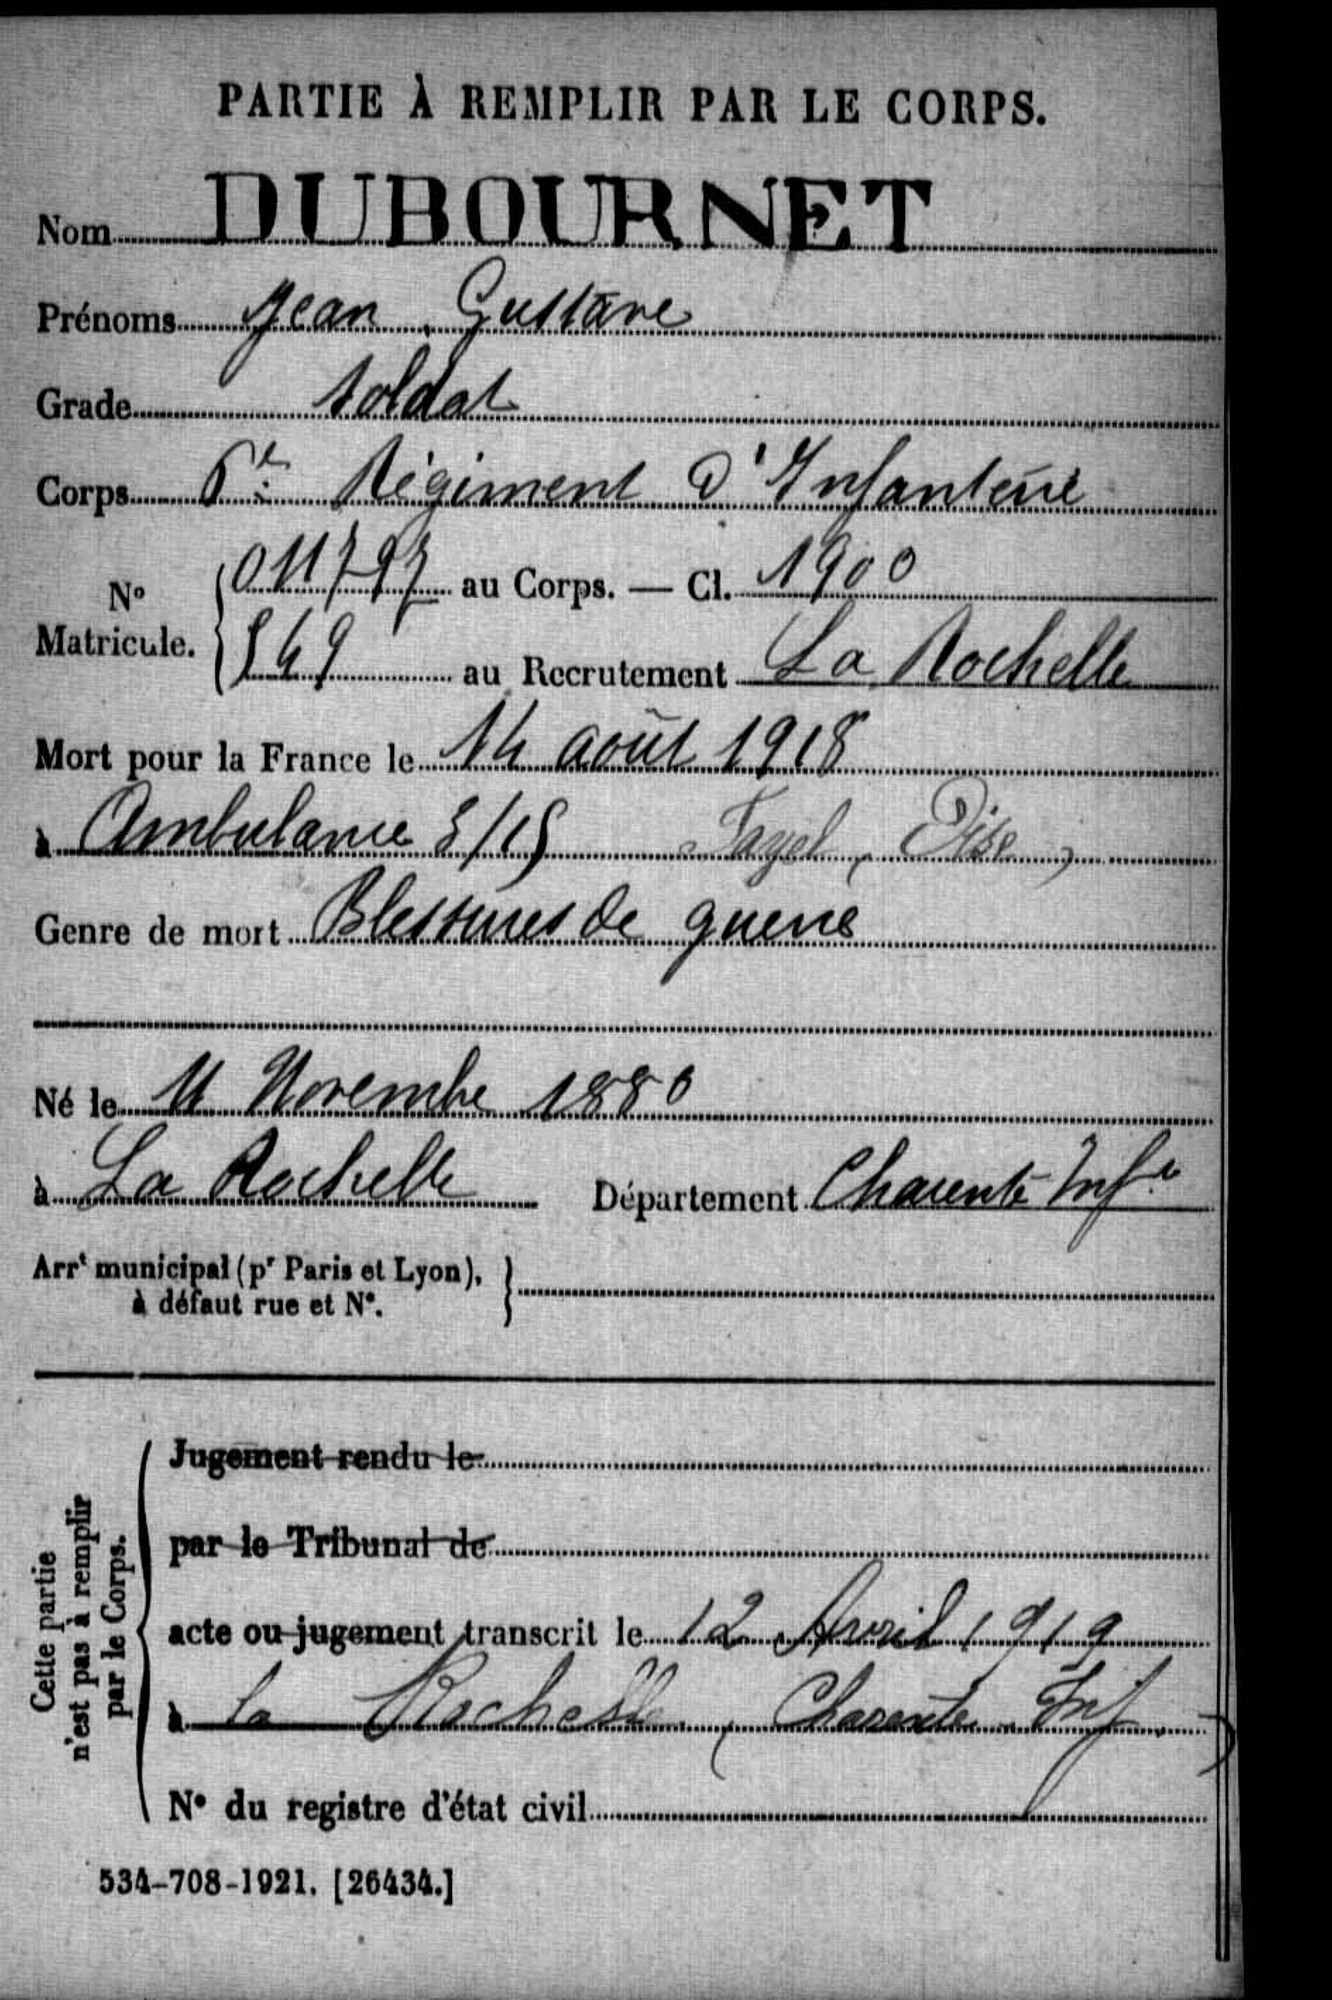 PARTIE À REMPLIR PAR LE CORPS.
Nom DUBOURNET
Prénoms Jean Gustave
Grade Soldat
Corps 6e Régiment d'Infanterie
No Matricule. 011797 au Corps. — Cl. 1900
549 au Recrutement La Rochelle
Mort pour la France le 14 août 1918
à Ambulance 5/15 Fayel (Oise)
Genre de mort Blessures de guerre
Né le 11 Novembre 1880
à La Rochelle Département Charente Infre
Arrt municipal (pr Paris et Lyon),
à défaut rue et N°.
Cette partie
n'est pas à remplir
par le Corps.
Jugement rendu le
par le Tribunal de
acte ou jugement transcrit le 12 Avril 1919
à la Rochelle (Charente Inf.)
N° du registre d'état civil
534-708-1921. [26434.]